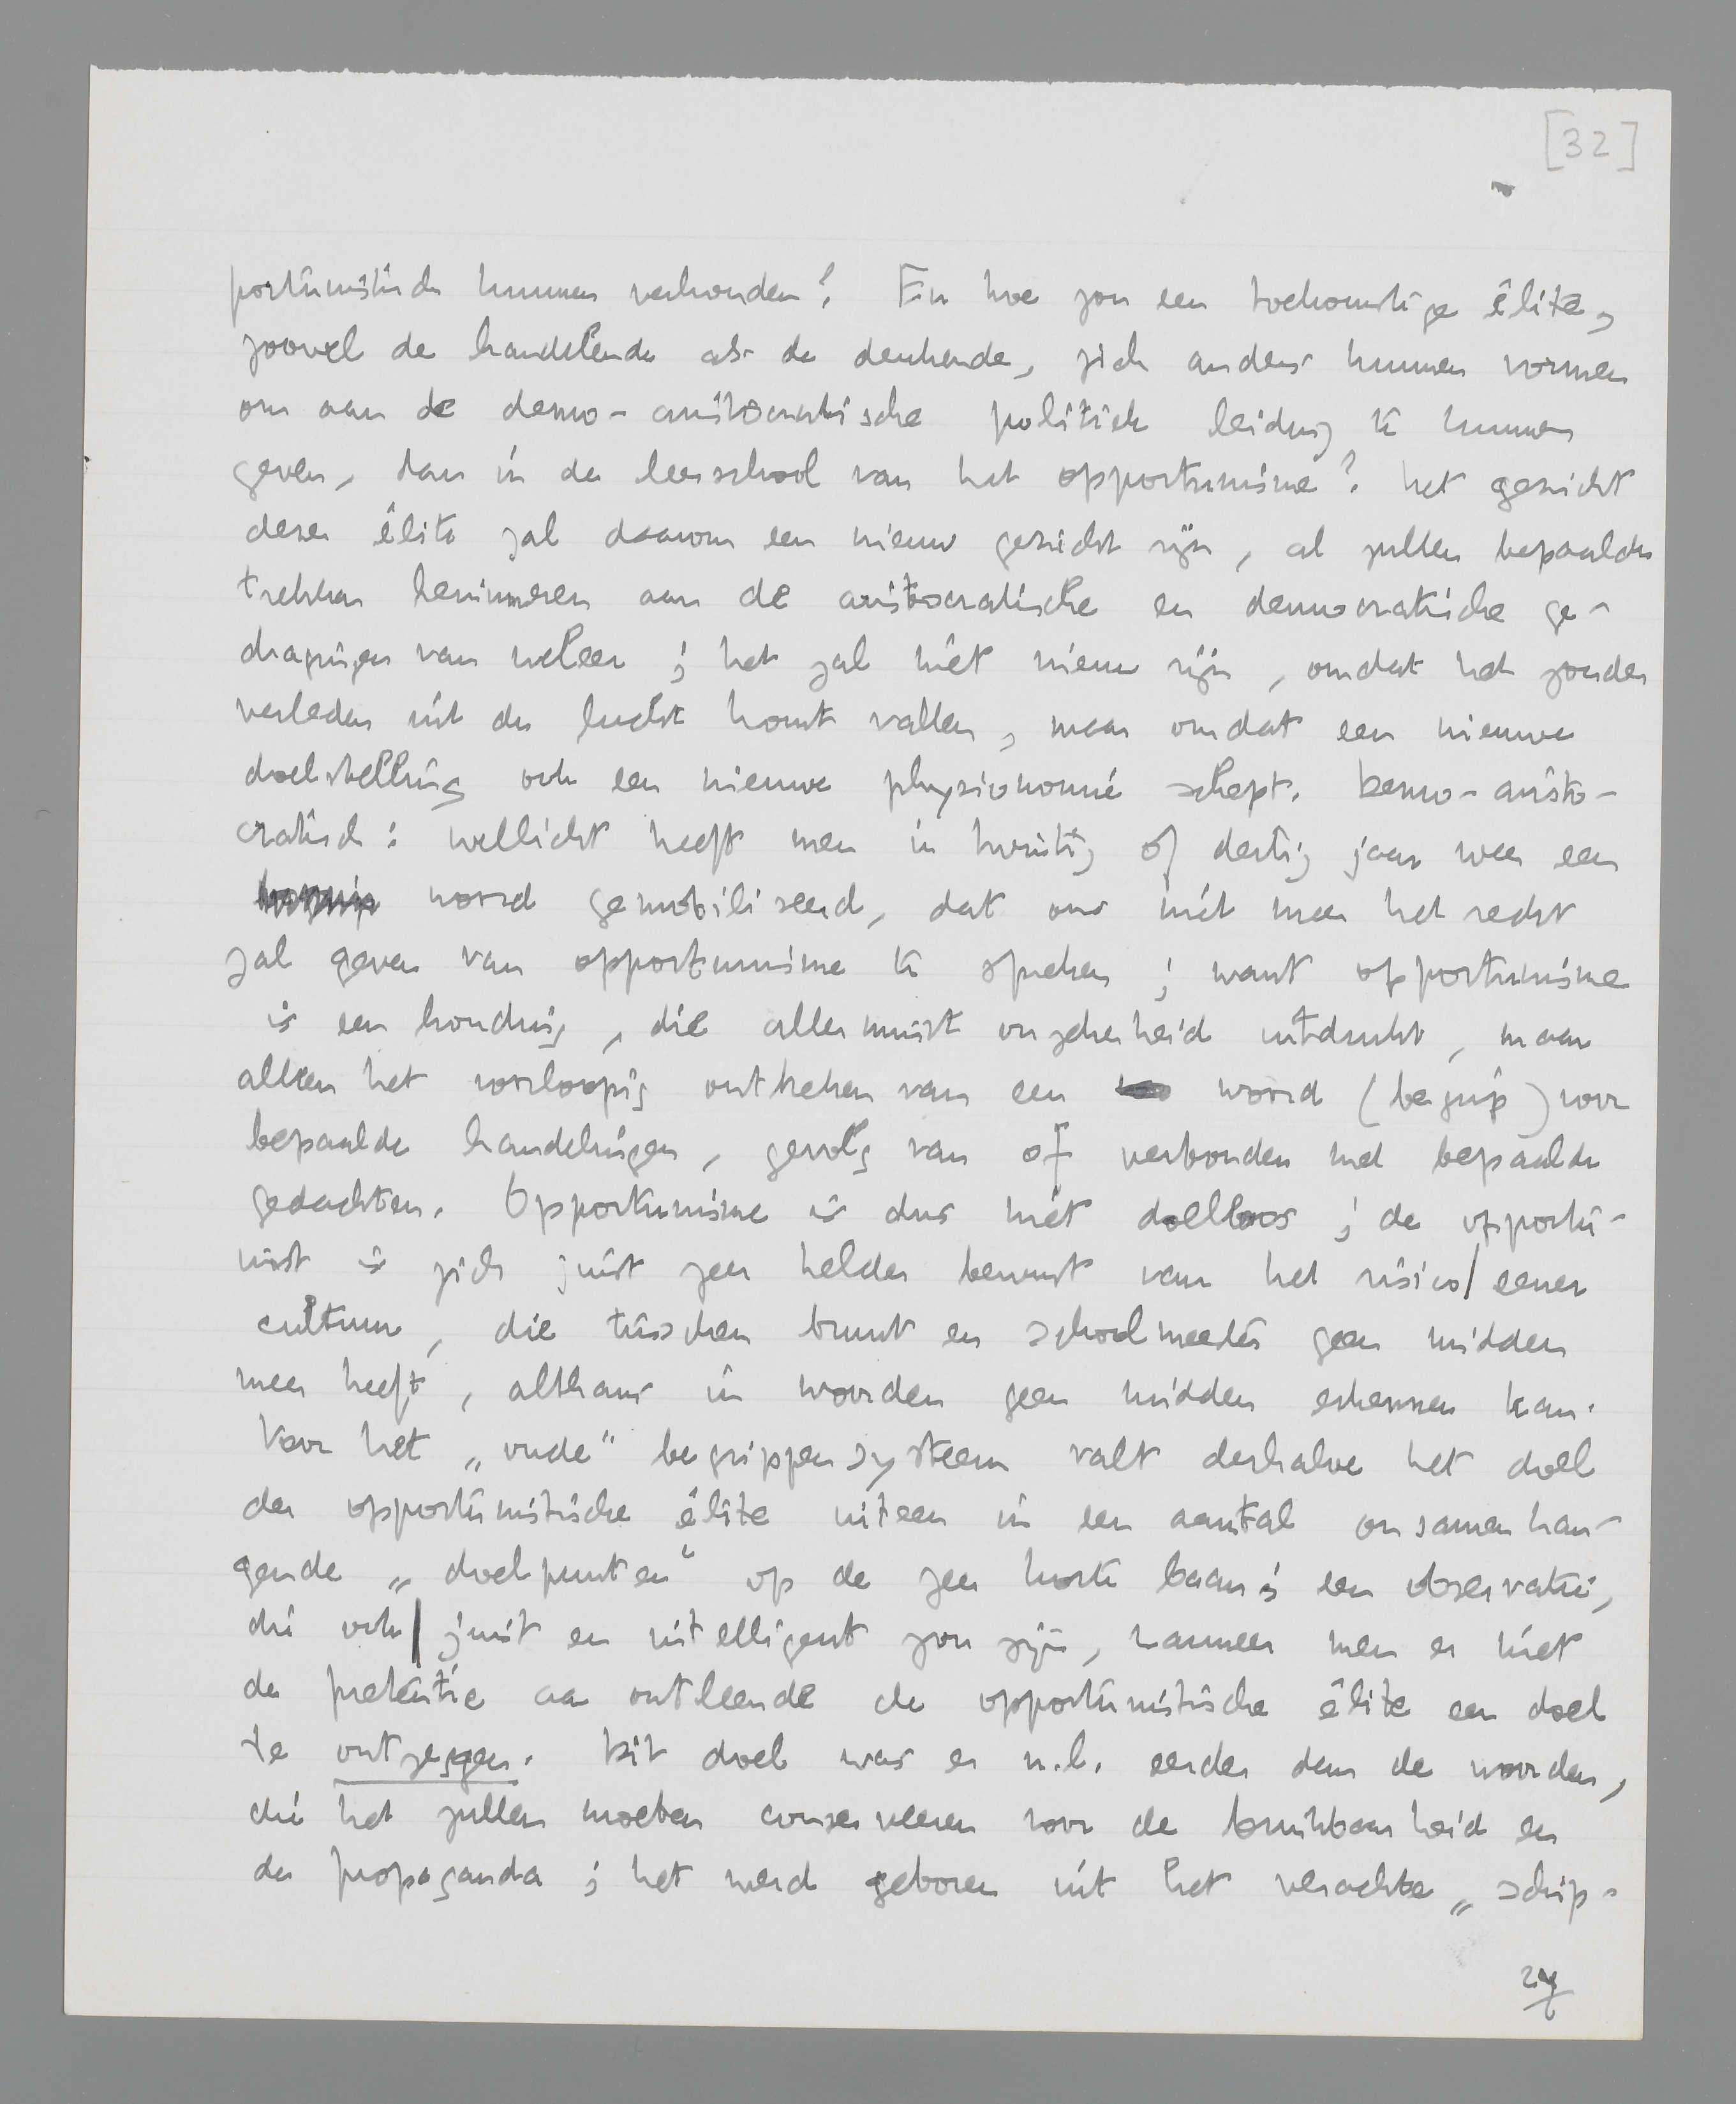 [32]
portunistisch kunnen verkonden? En hoe zou een toekomstige élite,
zoowel de handelende als de denkende, zich anders kunnen vormen
om aan de demo-aristocratische politiek leiding te kunnen
geven, dan in de leerschool van het opportunisme? Het gezicht
dezer élite zal daarom een nieuw gezicht zijn, al zullen bepaalde
trekken herinneren aan de aristocratische en democratische ge-
dragingen van weleer; het zal niet nieuw zijn, omdat het zonder
verleden uit de lucht komt vallen, maar omdat een nieuwe
doelstelling ook een nieuwe physionomie schept. Demo-aristo-
cratisch: wellicht heeft men in twintig of dertig jaar weer een
woord gemobiliseerd, dat ons niet meer het recht
zal geven van opportunisme te spreken; want opportunisme
is een houding, die allerminst onzekerheid uitdrukt, maar
alleen het voorloopig ontbreken van een woord (begrip) voor
bepaalde handelingen, gevolg van of verbonden met bepaalde
gedachten. Opportunisme is dus niet doelloos; de opportu-
nist is zich juist zeer helder bewust van het risico eener
cultuur, die tusschen bruut en schoolmeester geen midden
meer heeft, althans in woorden geen midden erkennen kan.
Voor het „oude" begrippensysteem valt derhalve het doel
der opportunistische élite uiteen in een aantal onsamenhan-
gende „doelpunten" op de zeer korte baan; een observatie,
die ook juist en intelligent zou zijn, wanneer men er niet
de pretentie aan ontleende de opportunistische élite een doel
te ontzeggen. Dit doel was er n.l. eerder dan de woorden,
die het zullen moeten conserveeren voor de bruikbaarheid en
de propaganda; het werd geboren uit het verachte „schip-